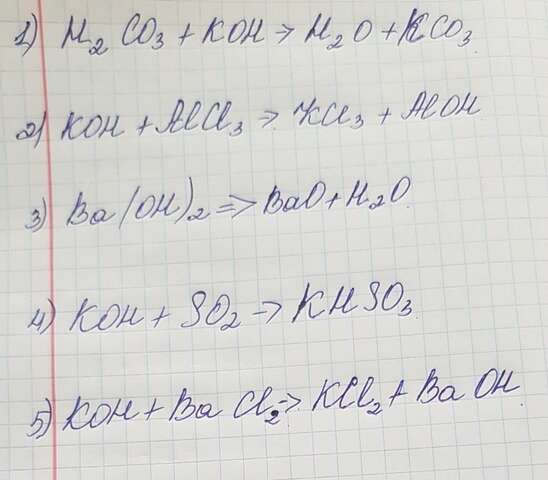 1) H₂CO₃ + KOH → H₂O + KCO₃
2) KOH + AlCl₃ → KCl₃ + AlOH
3) Ba(OH)₂ => BaO + H₂O
4) KOH + SO₂ → KHSO₃
5) KOH + BaCl₂ → KCl₂ + BaOH